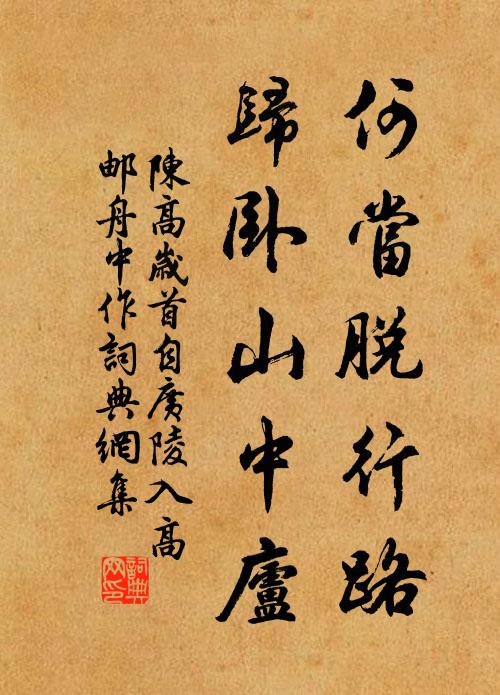 何當脫行路
歸卧山中廬
陳高歲首自廣陵入高
邮舟中作詞典網集
詞典网印